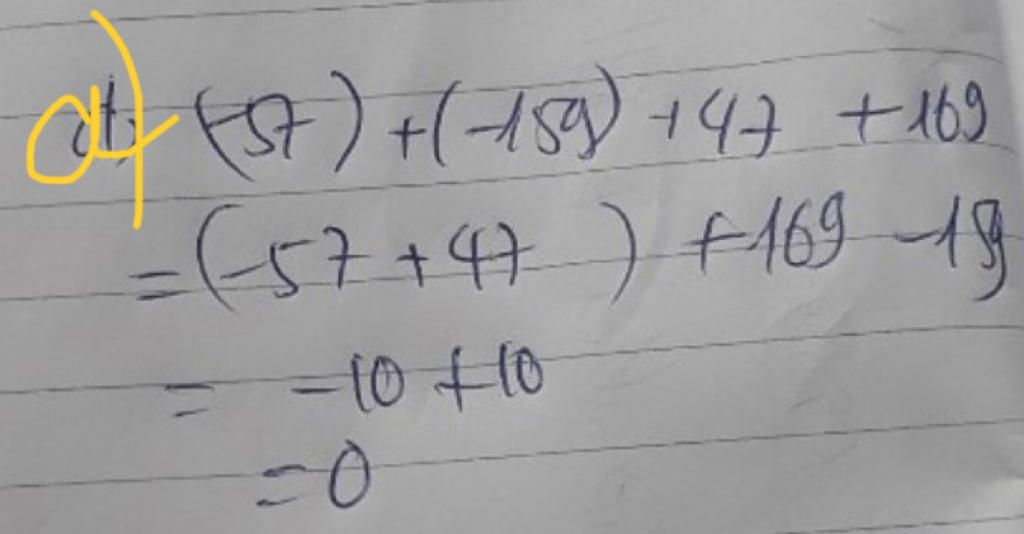 d) (-57) + (-159) + 47 + 169
= (-57 + 47) + 169 - 159
= -10 + 10
= 0